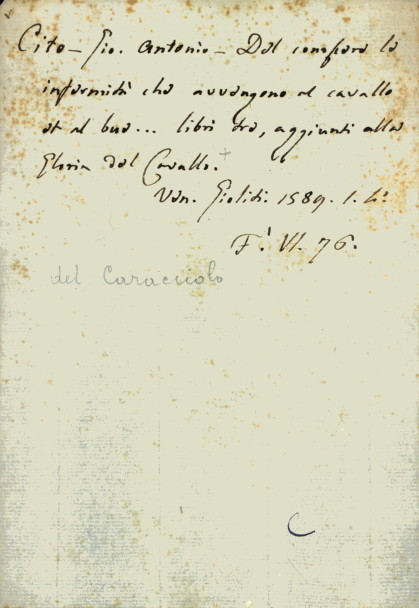 Cito - Gio. Antonio - Del conoscere le
infermità che avvengono al cavallo
et al bue... libri tre, aggiunti alla
Gloria del Cavallo. +
Ven. Gioliti. 1589. 1. 4º
F. VI. 76.
del Caracciolo